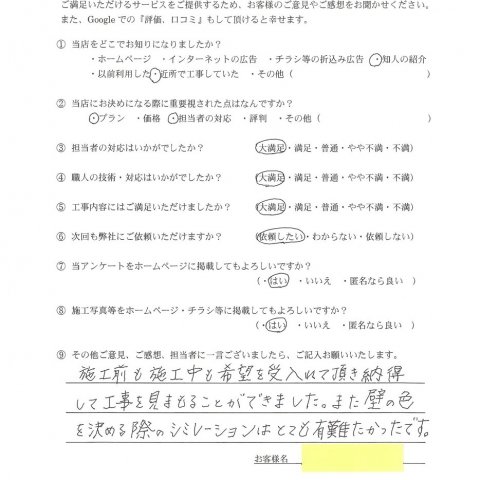 ご満足いただけるサービスをご提供するため、お客様のご意見やご感想をお聞かせください。
また、Google での『評価、口コミ』もして頂けると幸せます。
① 当店をどこでお知りになりましたか？
・ホームページ ・インターネットの広告 ・チラシ等の折込み広告 ・知人の紹介
・以前利用した ・近所で工事していた ・その他（ ）
② 当店にお決めになる際に重要視された点はなんですか？
・プラン ・価格 ・担当者の対応 ・評判 ・その他（ ）
③ 担当者の対応はいかがでしたか？ （大満足・満足・普通・やや不満・不満）
④ 職人の技術・対応はいかがでしたか？ （大満足・満足・普通・やや不満・不満）
⑤ 工事内容にはご満足いただけましたか？ （大満足・満足・普通・やや不満・不満）
⑥ 次回も弊社にご依頼いただけますか？ （依頼したい・わからない・依頼しない）
⑦ 当アンケートをホームページに掲載してもよろしいですか？
（・はい ・いいえ ・匿名なら良い ）
⑧ 施工写真等をホームページ・チラシ等に掲載してもよろしいですか？
（・はい ・いいえ ・匿名なら良い ）
⑨ その他ご意見、ご感想、担当者に一言ございましたら、ご記入お願いいたします。
施工前も施工中も希望を受入れて頂き納得
して工事を見まもることができました。また壁の色
を決める際のシミレーションはとても有難たかったです。
お客様名